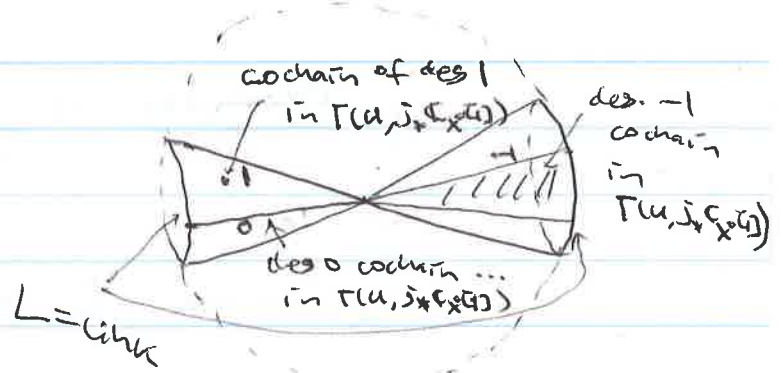 cochain of deg 1
in Γ(U, j_* ℂ_{X°}[1])
deg. -1
cochain
in
Γ(U, j_* ℂ_{X°}[1])
-1
.1
0
deg 0 cochain ...
in Γ(U, j_* ℂ_{X°}[1])
L = link